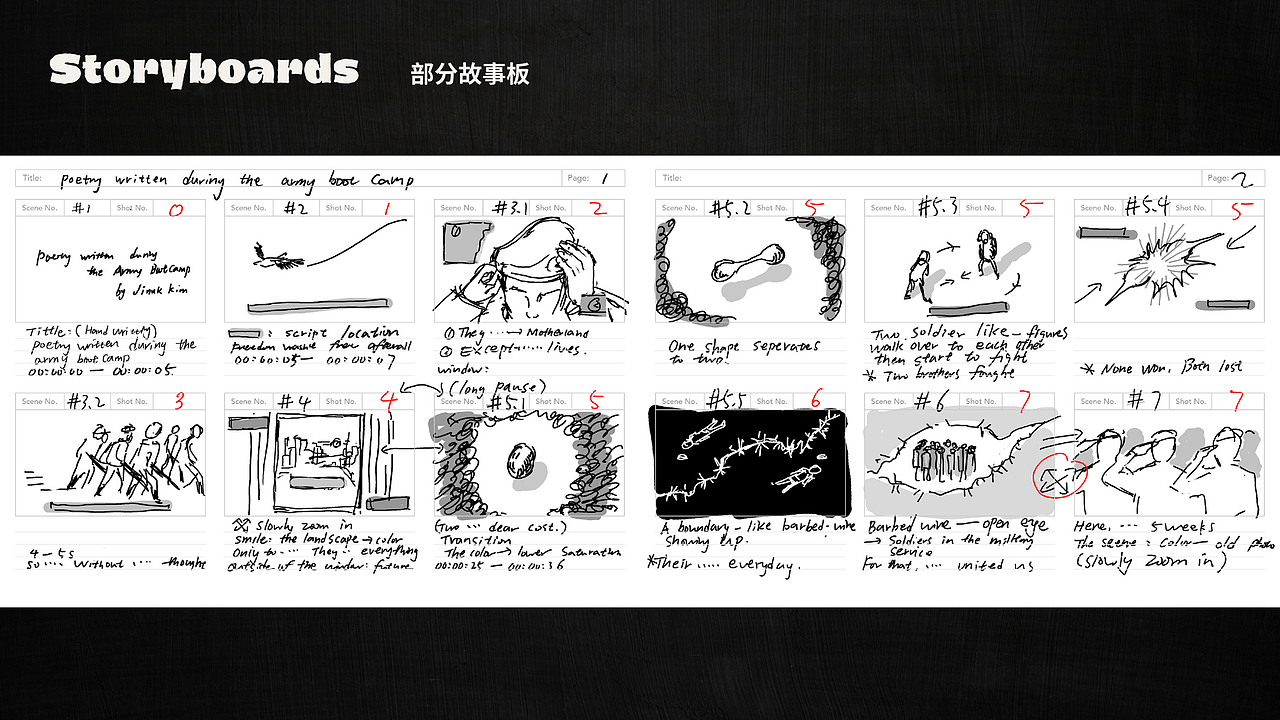 Storyboards
部分故事板
Title: Poetry written during the army boot Camp
Page: 1
Scene No. #1 Shot No. 0
Scene No. #2 Shot No. 1
Scene No. #3.1 Shot No. 2
Poetry written during
the Army BootCamp
by Jinuk kim
Tittle: (Hand writely)
poetry written during the
army boot Camp
00:00:00 — 00:00:05
: script location
00:00:05 — 00:00:07
① They ····→ Motherland
② Except ····· lives.
window:
(long pause)
Scene No. #3.2 Shot No. 3
Scene No. #4 Shot No. 4
Scene No. #5.1 Shot No. 5
4 – 5s
so ···· without ···· thought
Slowly zoom in
Smile: the landscape → color
Only to ··· They ·· everything
outside of the window: future
(Two ··· dear cost.)
Transition
The color → lower Saturation
00:00:25 — 00:00:36
Title:
Page: 2
Scene No. #5.2 Shot No. 5
Scene No. #5.3 Shot No. 5
Scene No. #5.4 Shot No. 5
One shape seperates
to two!
Two soldier like – figures
walk over to each other
then start to fight
* Two brothers fought
* None won, Both lost
Scene No. #5.5 Shot No. 6
Scene No. #6 Shot No. 7
Scene No. #7 Shot No. 7
A boundary – like barbed-wire
showing up.
*Their ····· everyday.
Barbed wire — open eye
→ Soldiers in the military
service
For that, ···· united us
Here, ··· 5 weeks
The scene: Color — old photo
(slowly zoom in)